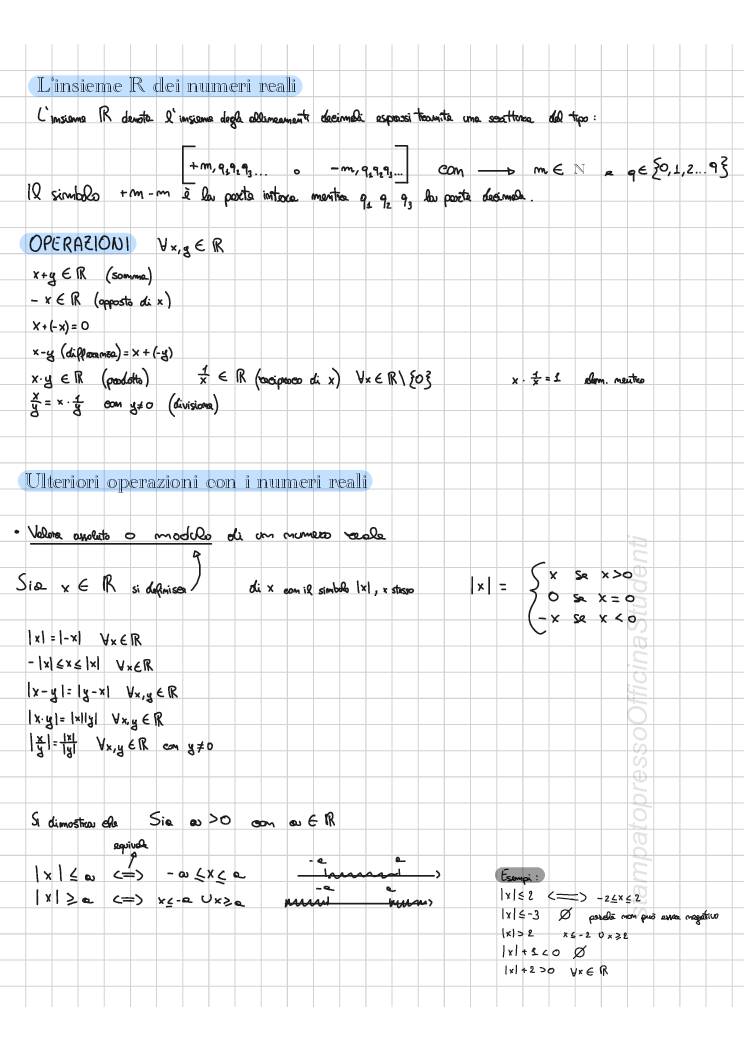 L'insieme ℝ dei numeri reali
L'insieme ℝ denota l'insieme degli allineamenti decimali espressi tramite una scrittura del tipo:
[+m, q₁q₂q₃... o -m, q₁q₂q₃...] con ⟶ m ∈ ℕ e q ∈ {0,1,2...9}
Il simbolo +m -m è la parte intera mentre q₁ q₂ q₃ la parte decimale.
OPERAZIONI ∀x,y ∈ ℝ
x+y ∈ ℝ (somma)
-x ∈ ℝ (opposto di x)
x+(-x)=0
x-y (differenza)=x+(-y)
x·y ∈ ℝ (prodotto) 1/x ∈ ℝ (reciproco di x) ∀x ∈ ℝ\{0} x · 1/x = 1 elem. neutro
x/y = x · 1/y con y≠0 (divisione)
Ulteriori operazioni con i numeri reali
• Valore assoluto o modulo di un numero reale
Sia x ∈ ℝ si definisce di x con il simbolo |x|, x stesso |x| = { x se x>0
0 se x=0
-x se x<0
|x|=|-x| ∀x∈ℝ
-|x|≤x≤|x| ∀x∈ℝ
|x-y|=|y-x| ∀x,y∈ℝ
|x·y|=|x||y| ∀x,y∈ℝ
|x/y|=|x|/|y| ∀x,y∈ℝ con y≠0
Si dimostra che Sia a>0 con a∈ℝ
equivale
|x|≤a <=> -a≤x≤a -a a
|x|≥a <=> x≤-a ∪ x≥a -a a
Esempi:
|x|≤2 <=> -2≤x≤2
|x|≤-3 ∅ perché non può essere negativo
|x|>2 x≤-2 ∪ x≥2
|x|+1<0 ∅
|x|+2>0 ∀x∈ℝ
stampatopressoOfficinaStudenti